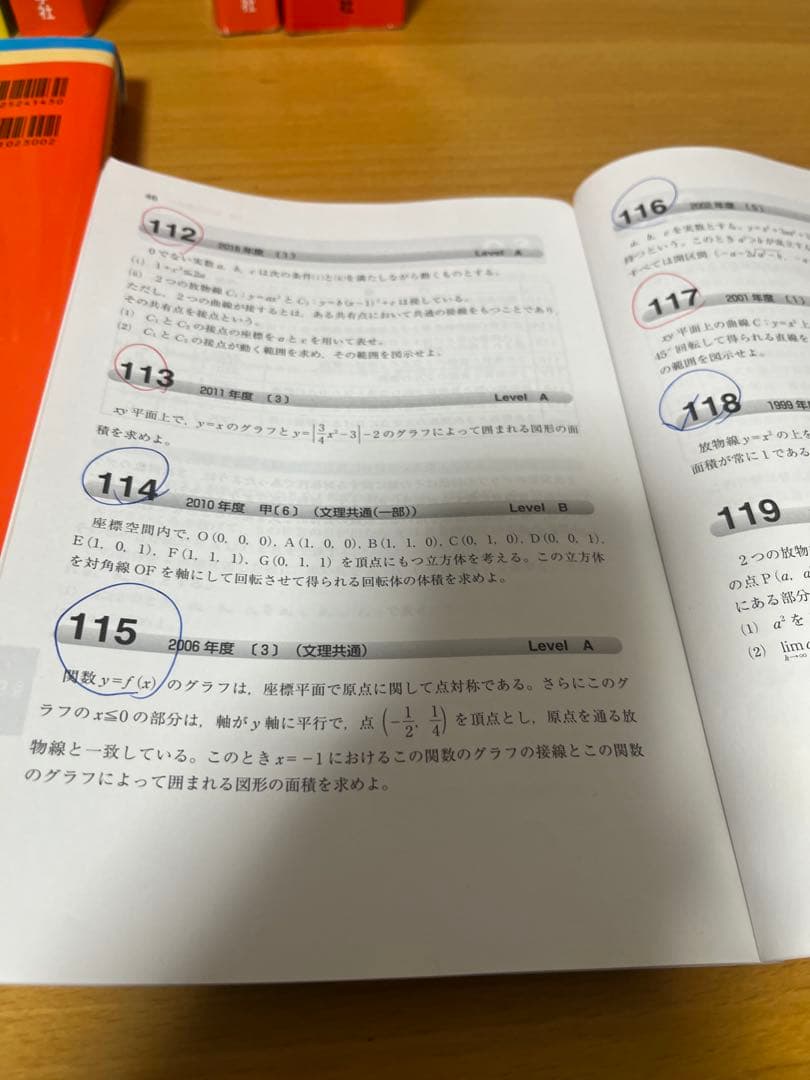 社
46
112 2015年度 〔1〕 Level A
0でない実数a, b, cは次の条件(i)と(ii)を満たしながら動くものとする。
(i) 1+c²≦2a
(ii) 2つの放物線C₁:y=ax²とC₂:y=b(x-1)²+cは接している。
ただし，2つの曲線が接するとは，ある共有点において共通の接線をもつことであり，
その共有点を接点という。
(1) C₁とC₂の接点の座標をaとcを用いて表せ。
(2) C₁とC₂の接点が動く範囲を求め，その範囲を図示せよ。
113 2011年度 〔3〕 Level A
xy平面上で，y=xのグラフとy=|3/4x²-3|-2のグラフによって囲まれる図形の面
積を求めよ。
114 2010年度 甲〔6〕 (文理共通(一部)) Level B
座標空間内で，O(0, 0, 0), A(1, 0, 0), B(1, 1, 0), C(0, 1, 0), D(0, 0, 1),
E(1, 0, 1), F(1, 1, 1), G(0, 1, 1)を頂点にもつ立方体を考える。この立方体
を対角線OFを軸にして回転させて得られる回転体の体積を求めよ。
115 2006年度 〔3〕 (文理共通) Level A
関数y=f(x)のグラフは，座標平面で原点に関して点対称である。さらにこのグ
ラフのx≦0の部分は，軸がy軸に平行で，点(-1/2, 1/4)を頂点とし，原点を通る放
物線と一致している。このときx=-1におけるこの関数のグラフの接線とこの関数
のグラフによって囲まれる図形の面積を求めよ。
116 2002年度 〔5〕
a, b, cを実数とする。
持つという。このとき
すべては開区間
117 2001年度 〔1〕
xy平面上の曲線C:y=x³上
45°回転して得られる直線を
の範囲を図示せよ。
118 1999年
放物線y=x²の上を
面積が常に1である
119
2つの放物
の点P(a, a
にある部分
(1) a²を
(2) lim